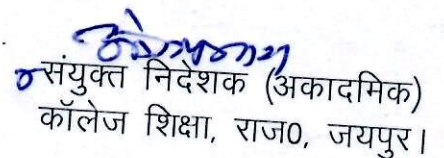 संयुक्त निदेशक (अकादमिक)
कॉलेज शिक्षा, राज0, जयपुर।